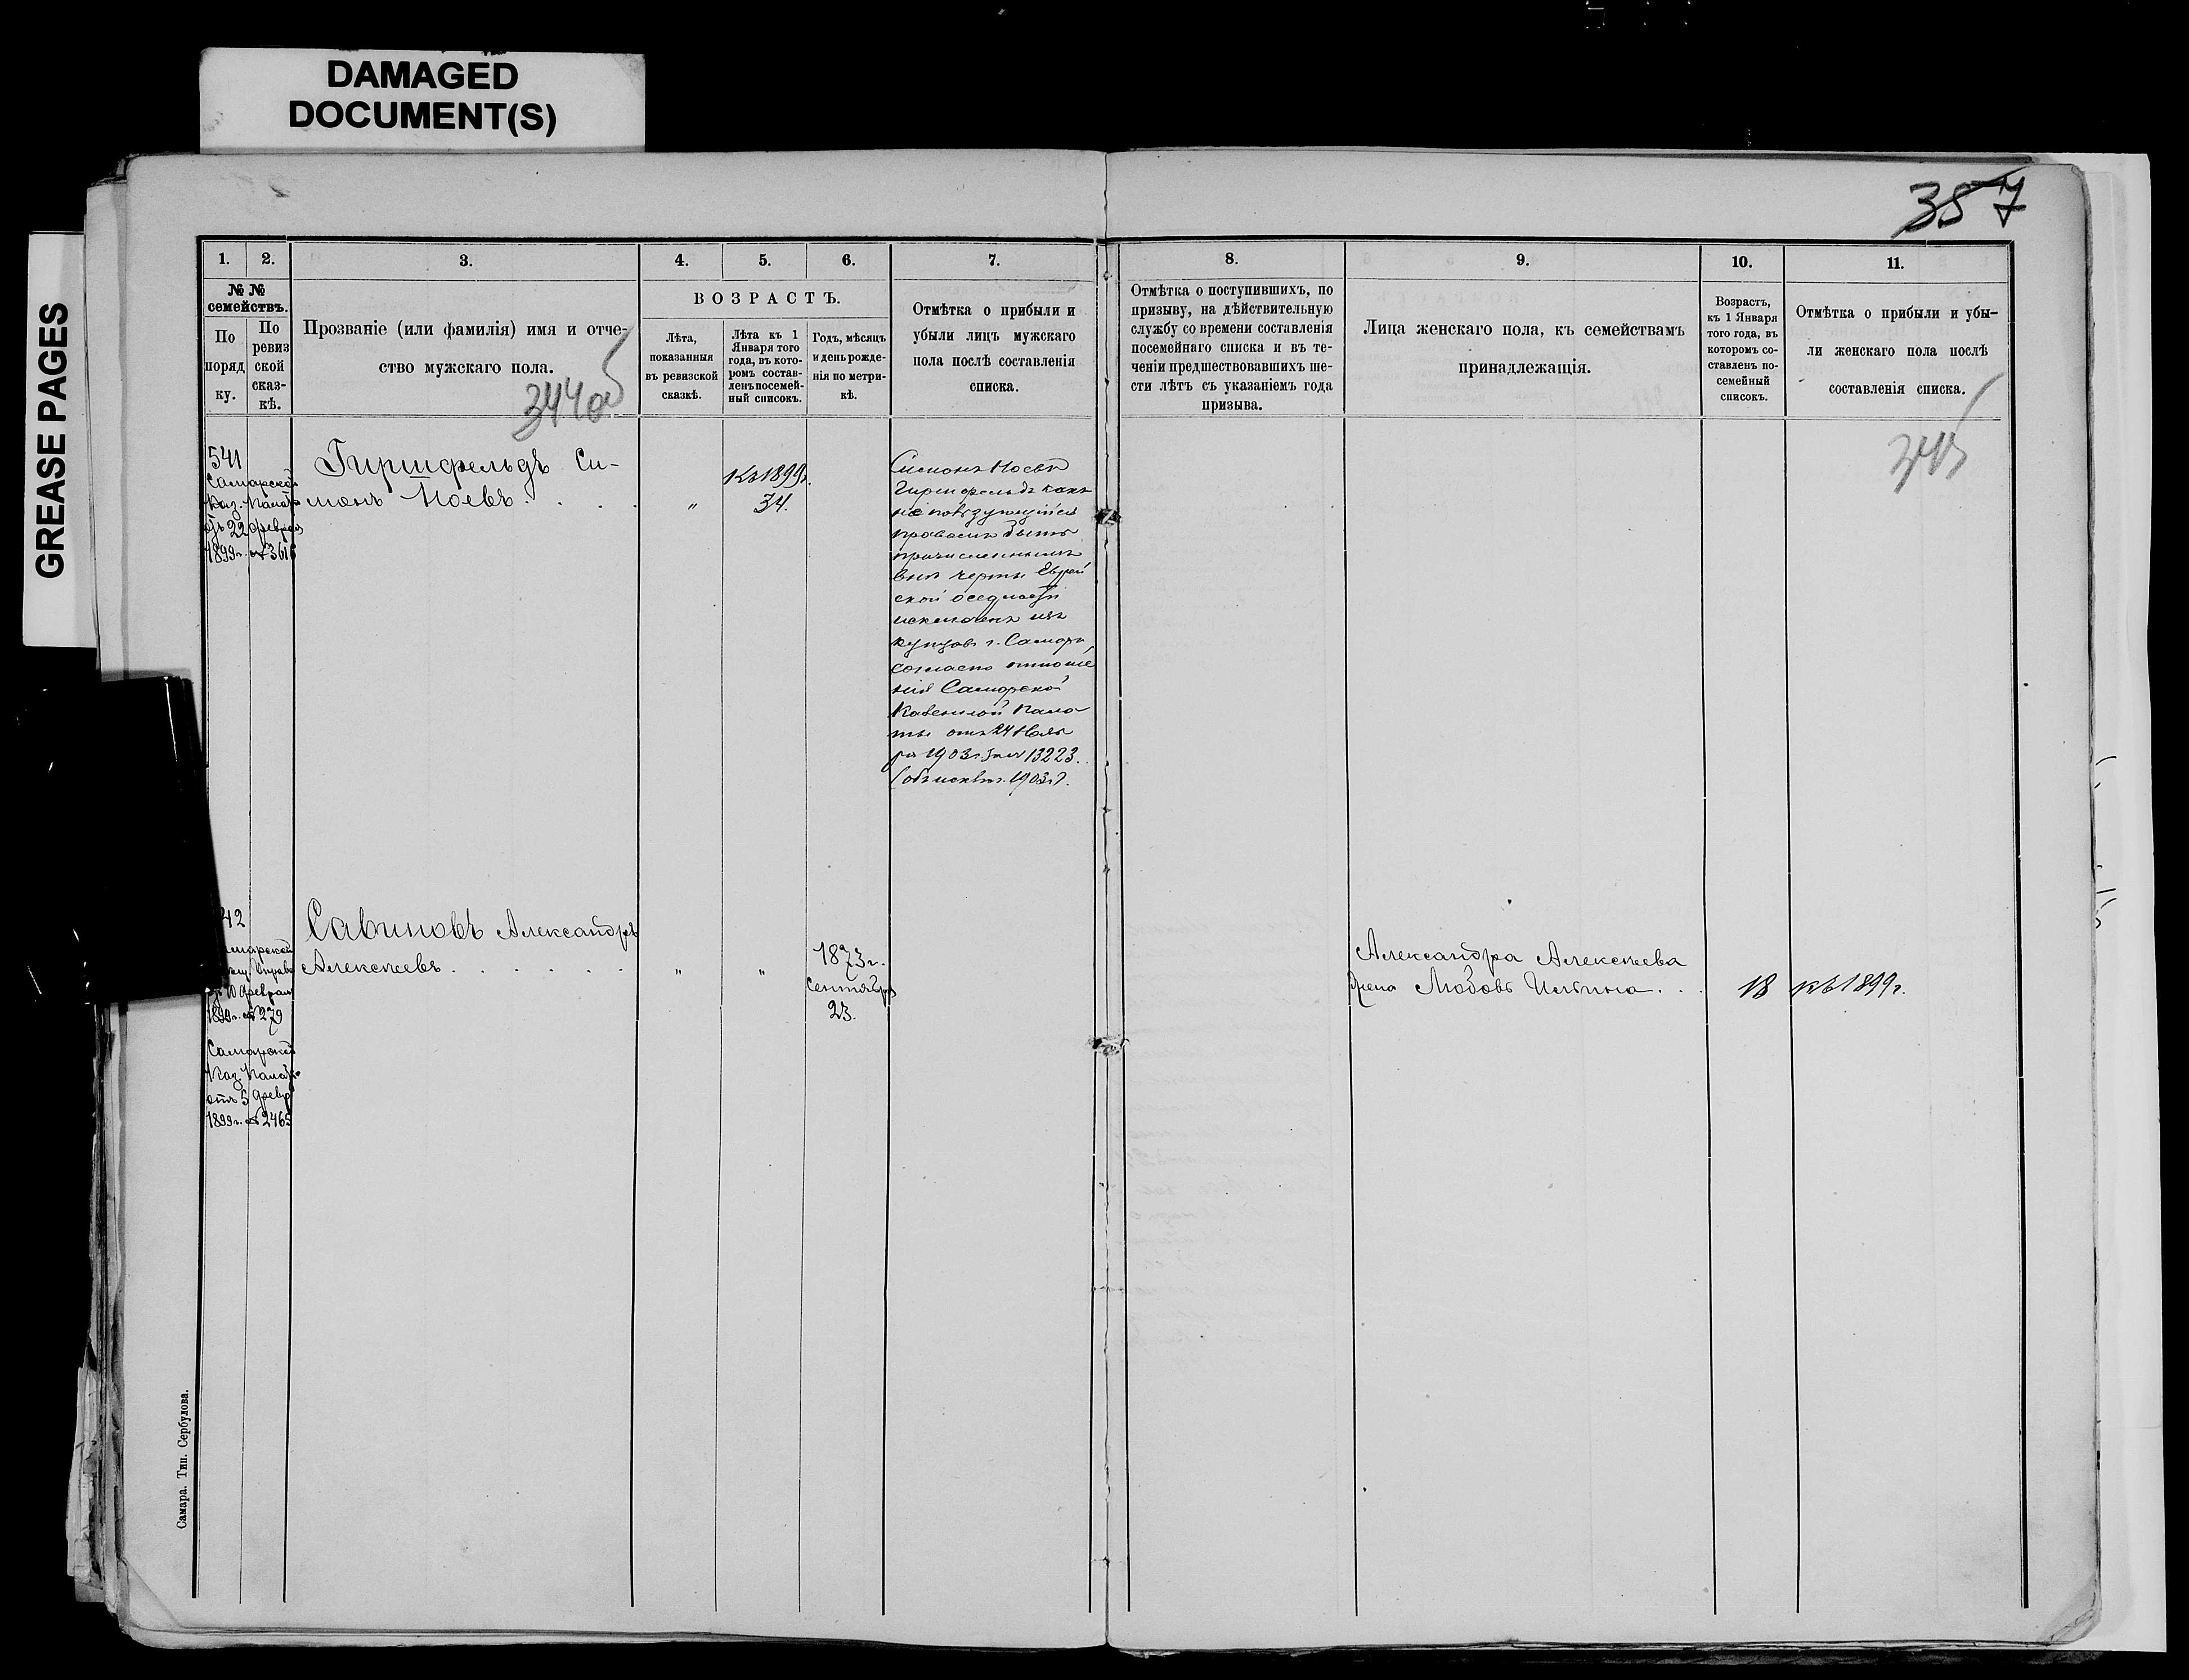 DAMAGED
DOCUMENT(S)
GREASE PAGES
357
1.
2.
3.
4.
5.
6.
7.
8.
9.
10.
11.
№ №
семействъ.
По
поряд
ку.
По
ревиз
ской
сказ-
кѣ.
Прозваніе (или фамилія) имя и отче-
ство мужскаго пола.
344об
ВОЗРАСТЪ.
Лѣта,
показанныя
въ ревизской
сказкѣ.
Лѣта къ 1
Января того
года, въ кото-
ромъ состав-
ленъ посемей-
ный списокъ.
Годъ, мѣсяцъ
и день рожде-
нія по метри-
кѣ.
Отмѣтка о прибыли и
убыли лицъ мужскаго
пола послѣ составленія
списка.
Отмѣтка о поступившихъ, по
призыву, на дѣйствительную
службу со времени составленія
посемейнаго списка и въ те-
ченіи предшествовавшихъ ше-
сти лѣтъ съ указаніемъ года
призыва.
Лица женскаго пола, къ семействамъ
принадлежащія.
Возрастъ,
къ 1 Января
того года, въ
которомъ со-
ставленъ по-
семейный
списокъ.
Отмѣтка о прибыли и убы-
ли женскаго пола послѣ
составленія списка.
345
541
Самарской
Каз. Палаты
отъ 22 февраля
1899 г. № 3616
Гиршфельдъ Си-
монъ Ноевъ . . . .
"
Къ 1899 г.
34.
Симонъ Ноевъ
Гиршфельдъ какъ
не пользующійся
правомъ быть
причисленнымъ
внѣ черты Еврей
ской осѣдлости
исключенъ изъ
купцовъ г. Самары,
согласно отноше
нія Самарской
Казенной Пала
ты отъ 24 Нояб
ря 1903 г. за № 13223.
42
Самарской
Управы
10 февраля
1899 г. № 279
Самарской
Каз. Палаты
отъ 5 февр.
1899 г. № 2465
Савиновъ Александръ
Алексѣевъ . . . . . .
"
"
1873 г.
Сентября
23.
Александра Алексѣева
Жена Любовь Ильина . . .
18
къ 1899 г.
Самара. Тип. Сербулова.